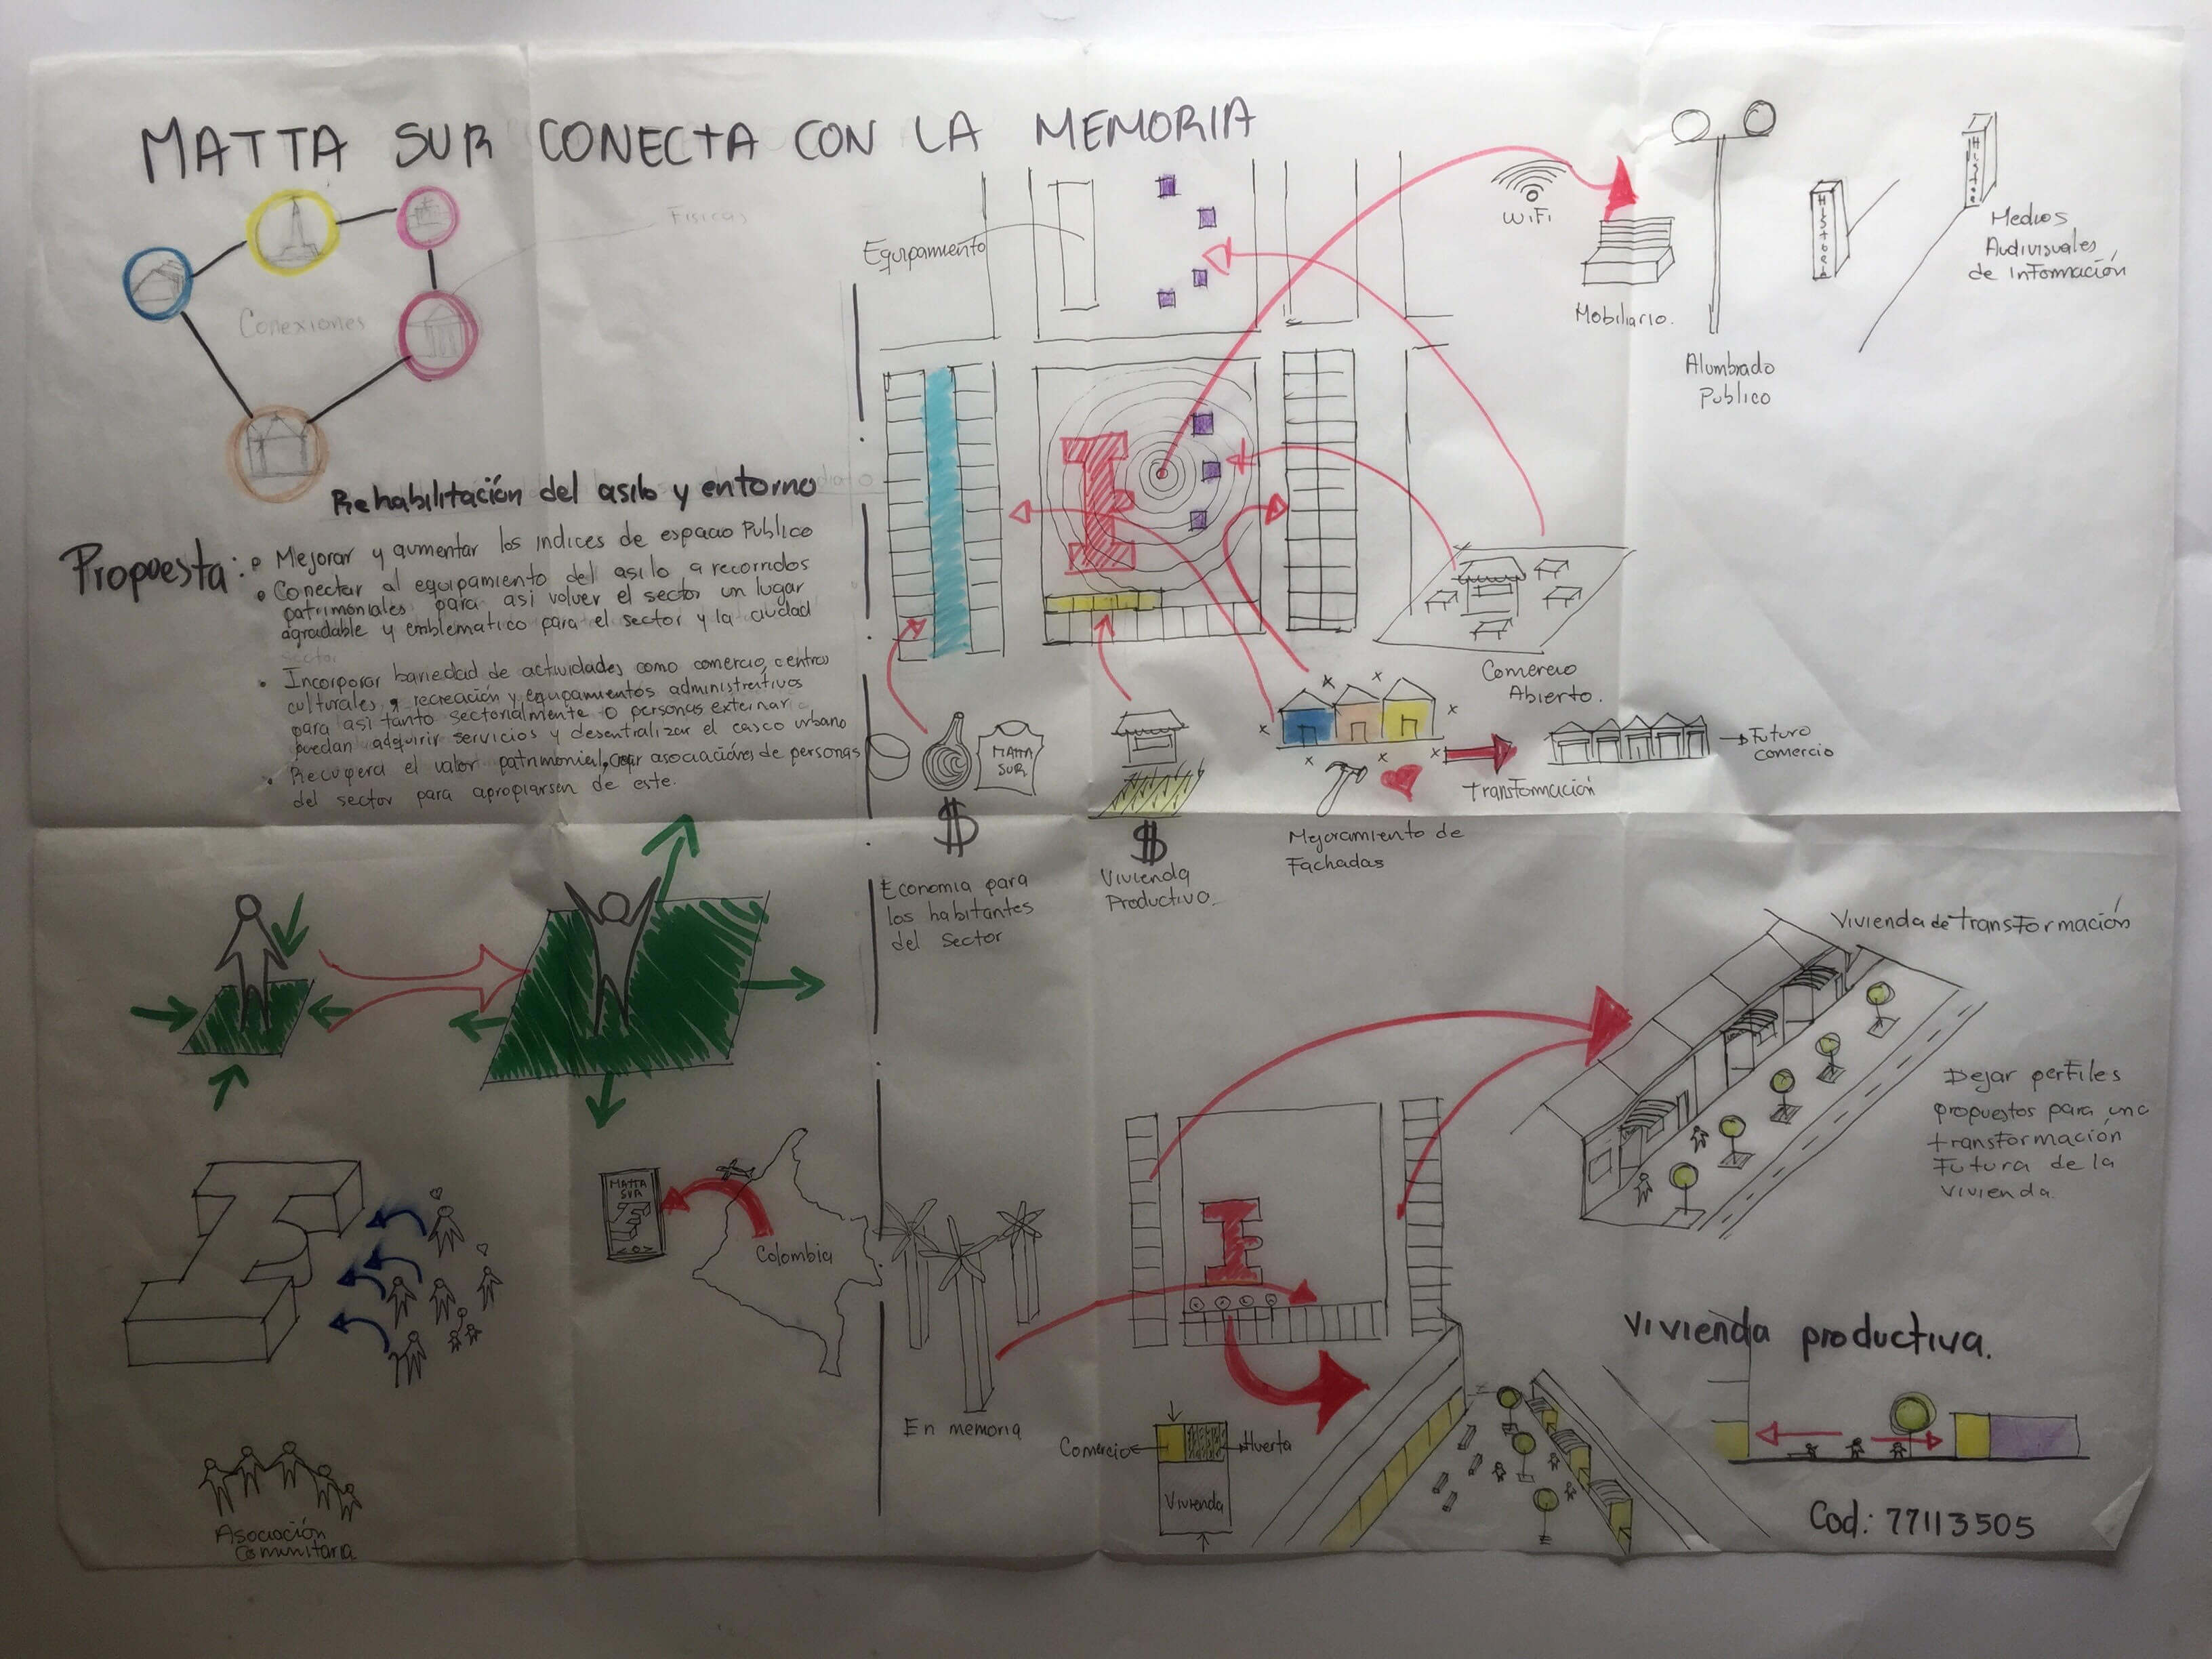 MATTA SUR CONECTA CON LA MEMORIA
Fisicas
Conexiones
Rehabilitación del asilo y entorno
Propuesta:
• Mejorar y aumentar los indices de espacio Publico
• Conectar al equipamiento del asilo a recorridos
patrimoniales para asi volver el sector un lugar
agradable y emblematico para el sector y la ciudad
sector
• Incorporar bariedad de actividades como comercio, centros
culturales, recreación y equipamientos administrativos
para asi tanto sectorialmente o personas externar
puedan adquirir servicios y desentralizar el casco urbano
• Recupera el valor patrimonial, crear asociaciónes de personas
del sector para apropiarsen de este.
Equipamiento
WiFi
Mobiliario.
Alumbrado
Publico
Historia
Historia
Medios
Audivisuales
de Información
Comercio
Abierto.
MATTA
SUR
$
Economia para
los habitantes
del sector
$
Vivienda
Productiva.
Mejoramiento de
Fachadas
Transformación
Futuro
comercio
Vivienda de transformación
Dejar perfiles
propuestos para una
transformación
Futura de la
vivienda.
MATTA
SUR
Colombia
En memoria
Asociación
Comunitaria
Comercio
Huerta
Vivienda
Vivienda productiva.
Cod.: 77113505